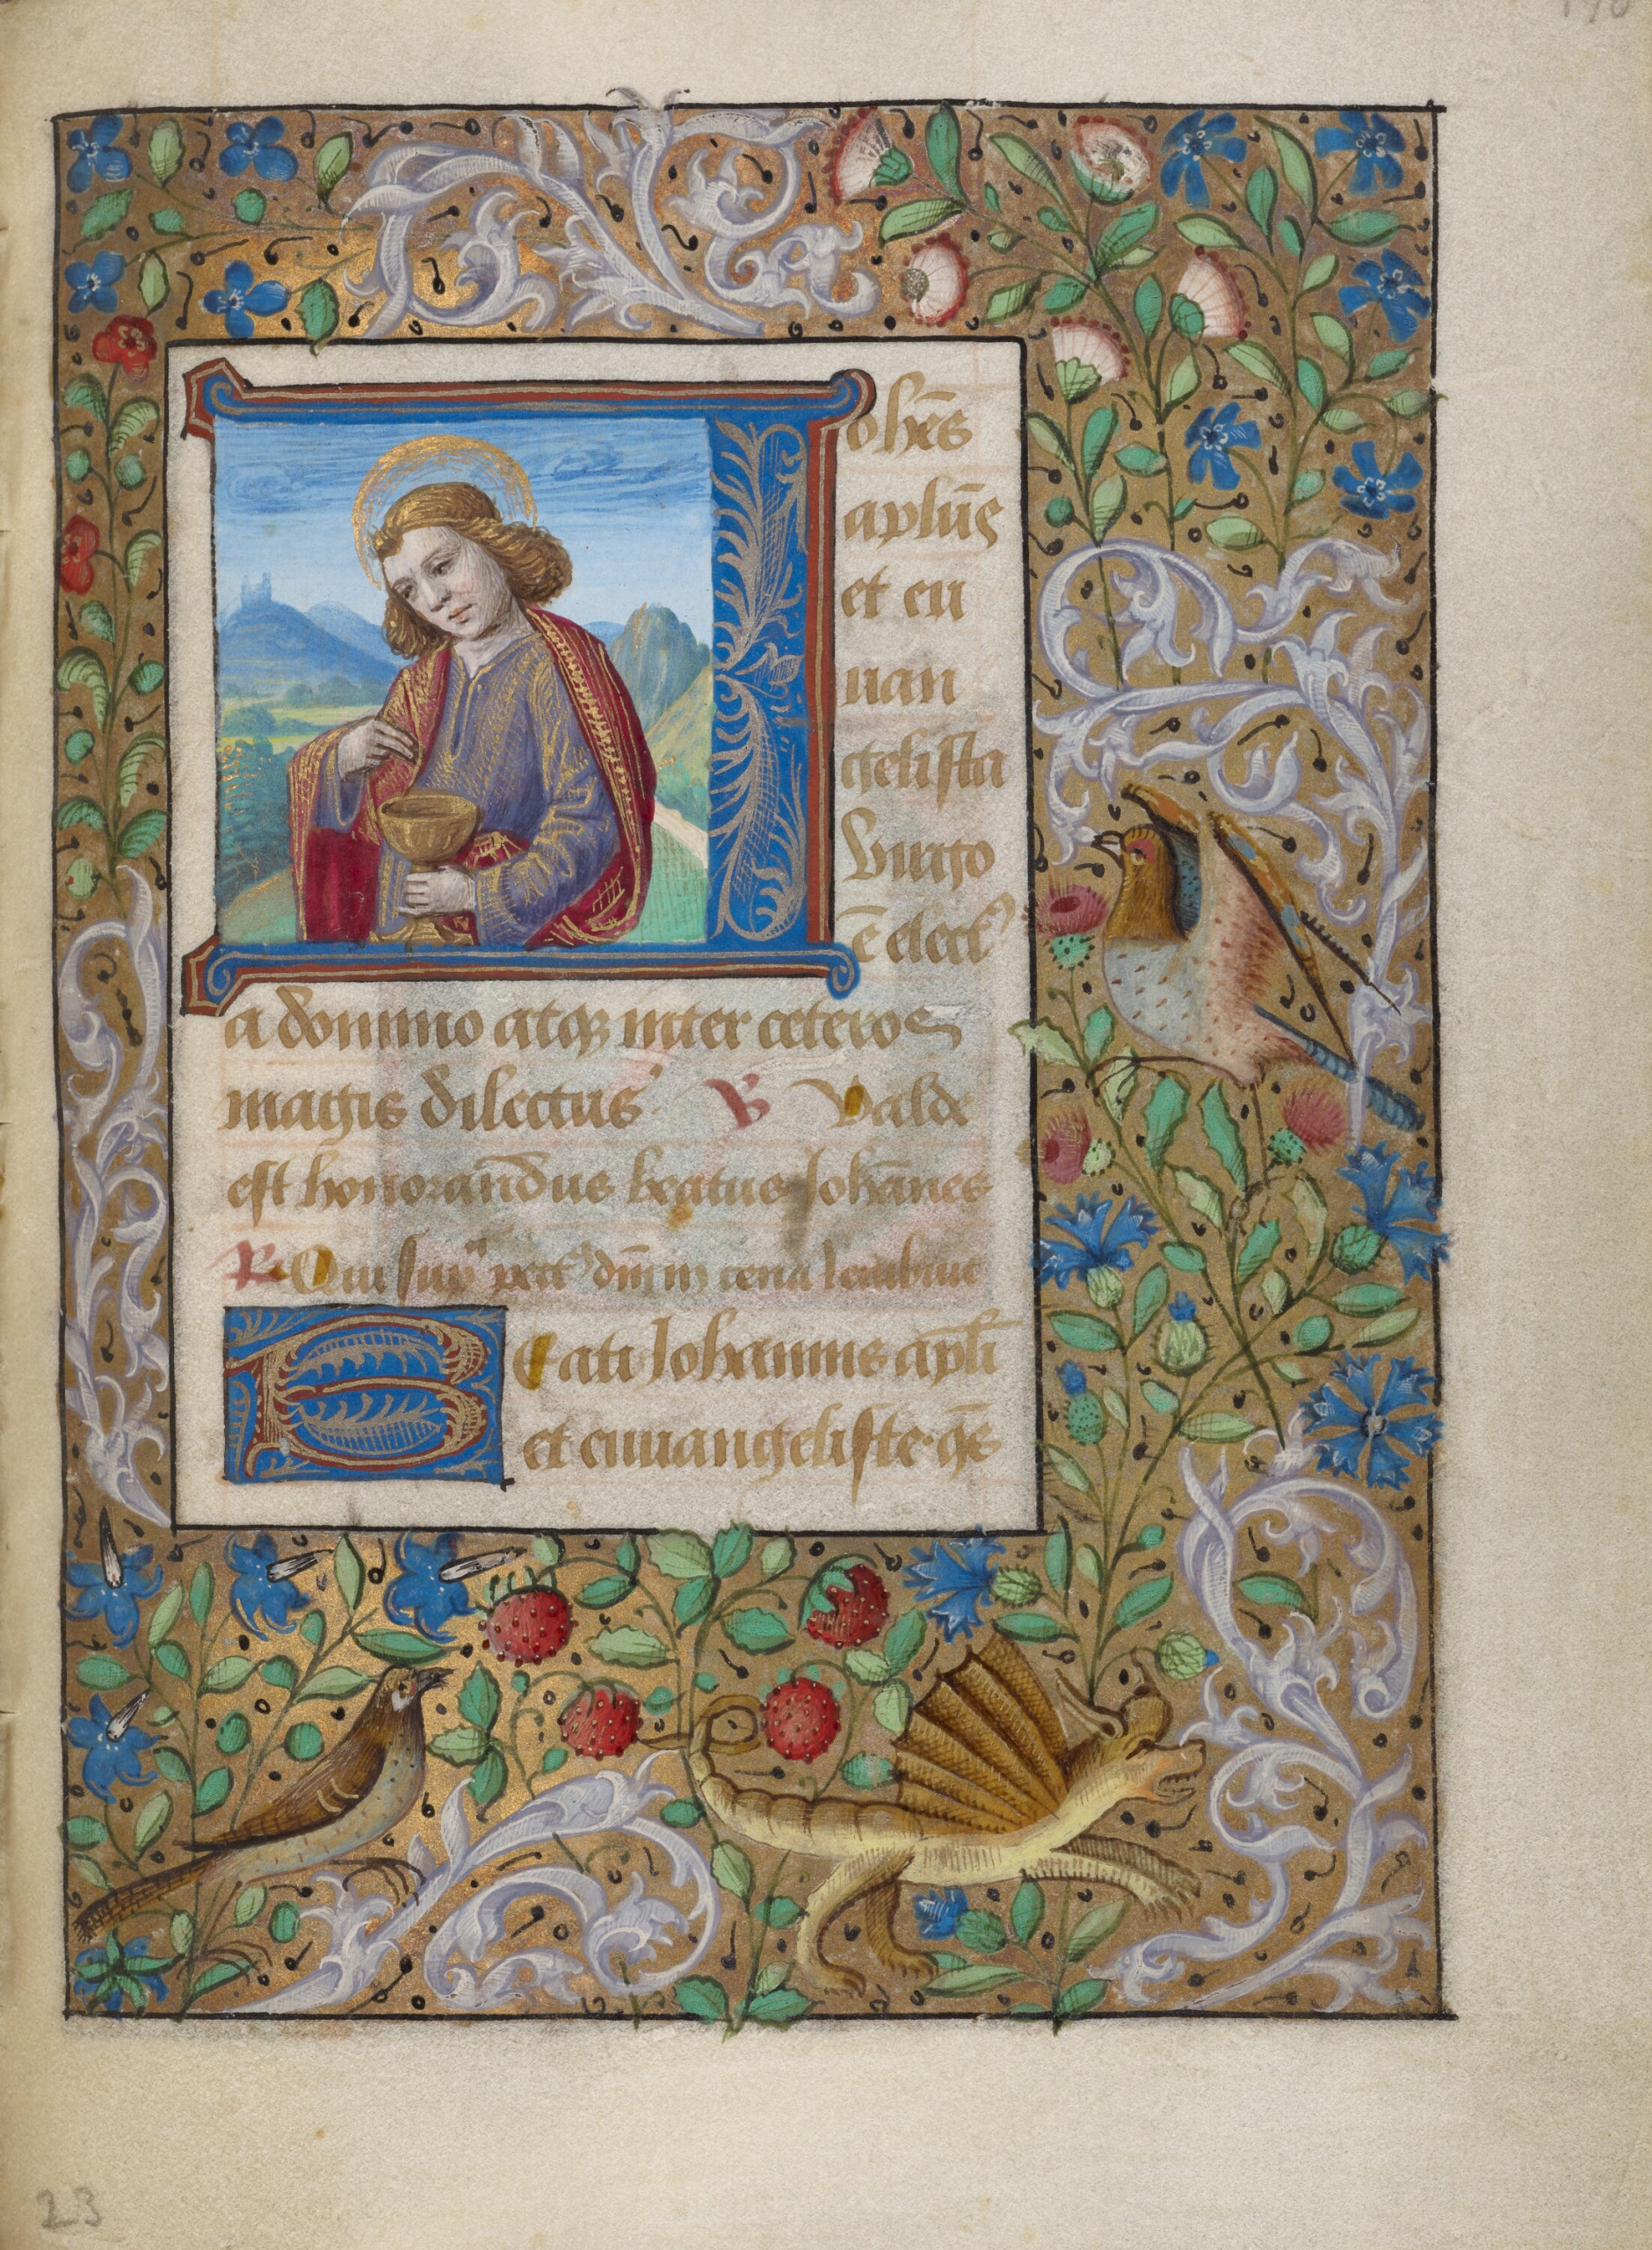 Iohēs
aplūs
et eu
uan
gelista
Virgo
ē elect᾽
a domino atqꝫ inter ceteros
magis dilectus. V Valde
est honorandus beatus Iohānes
R Qui sup᾽ pect᾽ dn̄i in cena
Beati Iohannis apl̄i
et euuangeliste q̄s
23